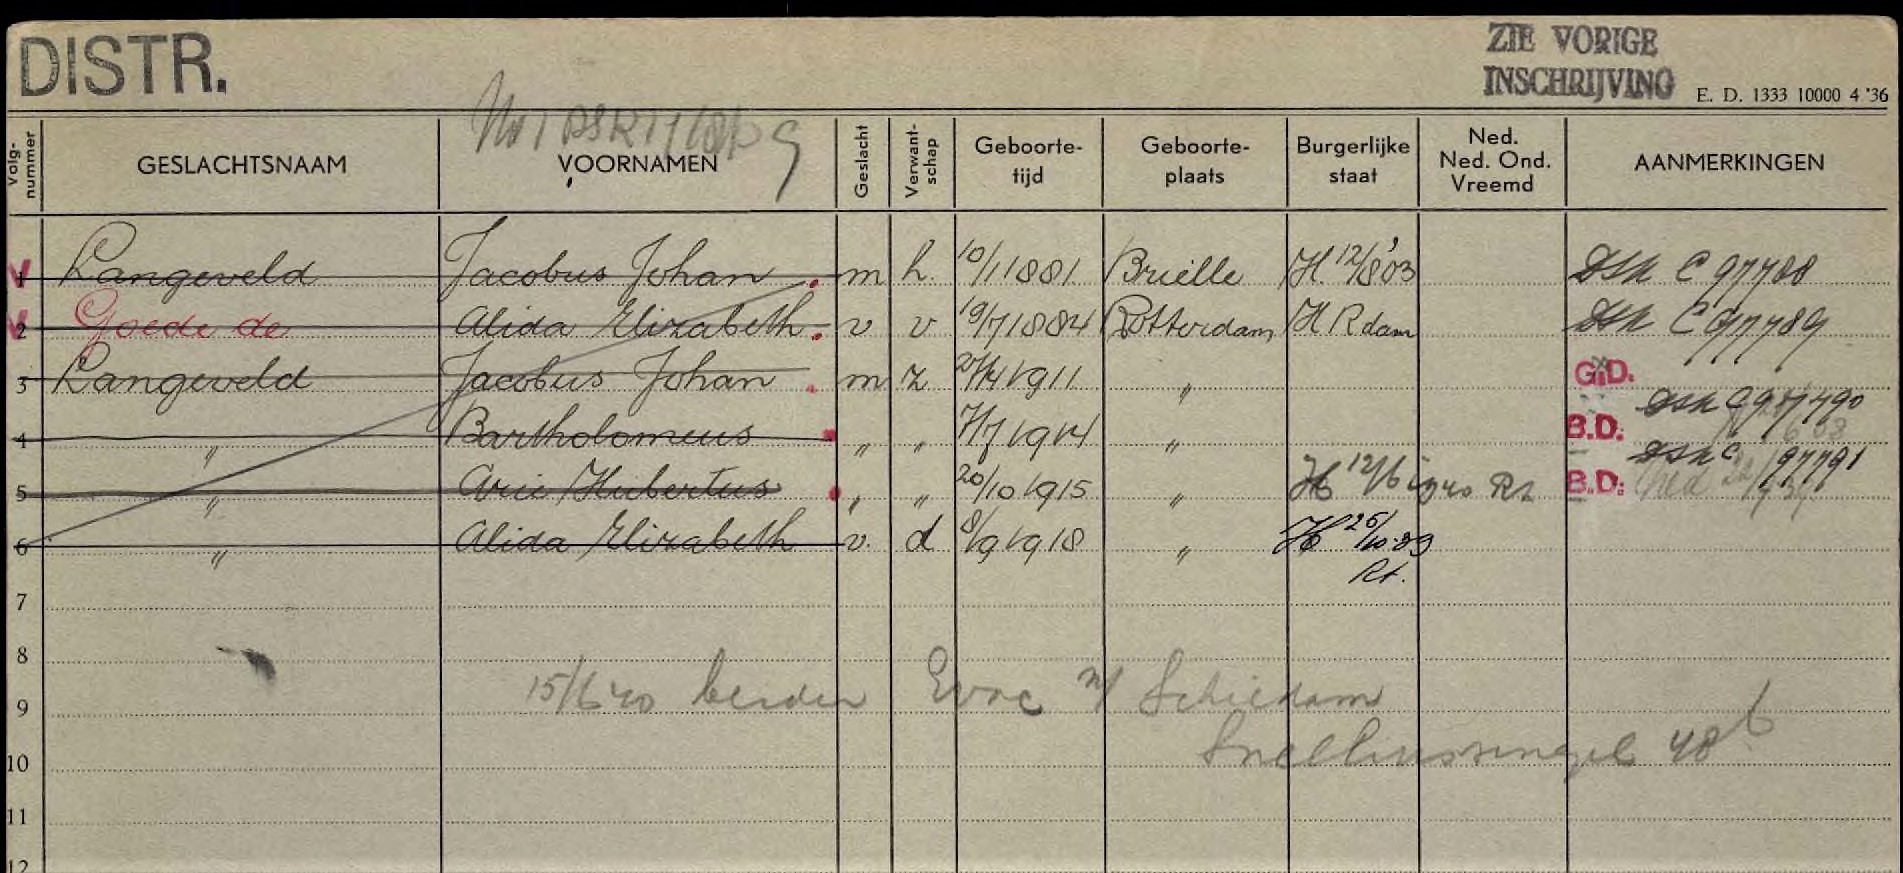 DISTR.
ZIE VORIGE
INSCHRIJVING
E. D. 1333 10000 4 '36
Volg-nummer GESLACHTSNAAM VOORNAMEN Geslacht Verwant-schap Geboorte-tijd Geboorte-plaats Burgerlijke staat Ned. Ned. Ond. Vreemd AANMERKINGEN
V 1 Langeveld Jacobus Johan m h. 10/1 1881 Brielle H. 12/8 '03 dsk C 97788
V 2 Goede de Alida Elizabeth v v 19/7 1884 Rotterdam H Rdam dsk C 97789
3 Langeveld Jacobus Johan m z 20/4 1911 " G.D.
dsk C 97790
4 " Bartholomeus " " 7/7 1914 " B.D.
dsk C 97791
5 " Arie Hubertus " " 20/10 1915 " H 12/6 1940 Rt B.D.
6 " Alida Elizabeth v. d 8/9 1918 " H 25/10.39
Rt.
7
8
15/6 40 beiden Evac n/ Schiedam
9
Snelliussingel 48 b
10
11
12